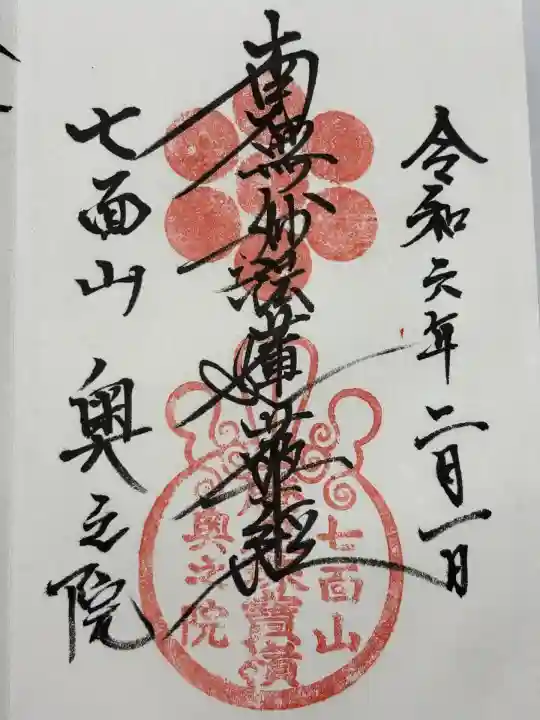 令和六年二月一日
南無妙法蓮華経
七面山 奥之院
七面山
奥之院